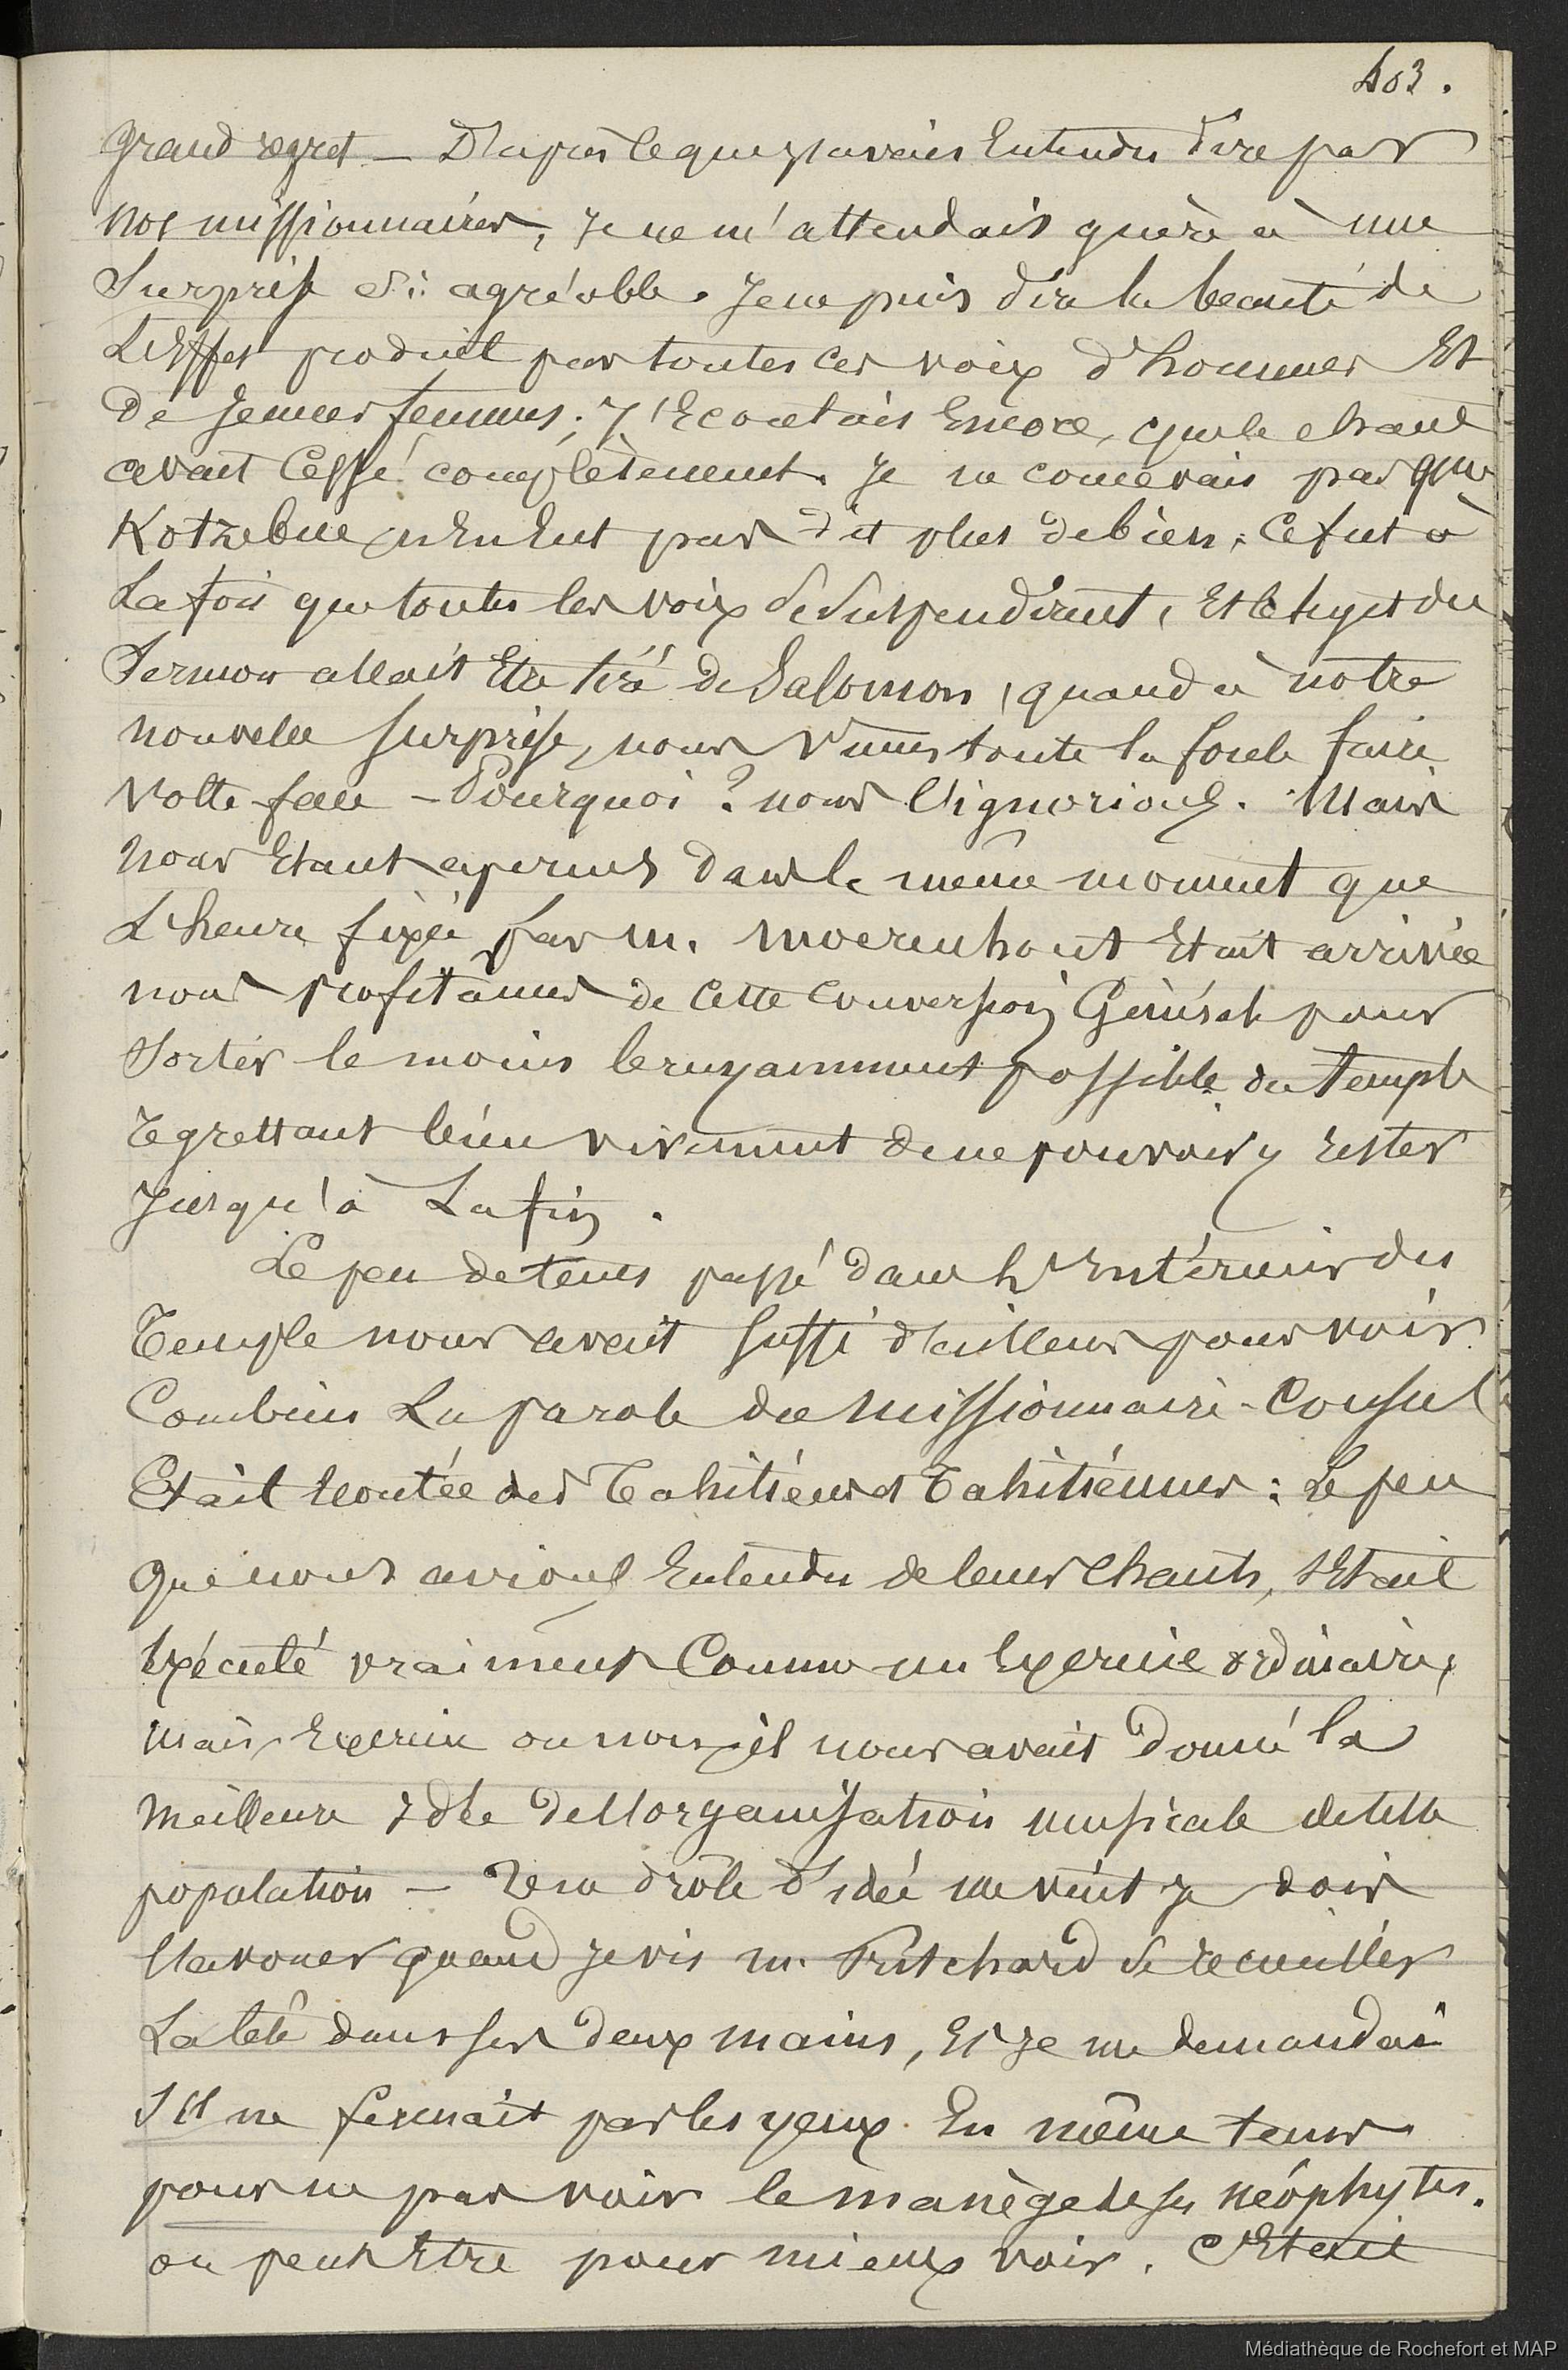 403.
grand regret — D'après ce que j'avais Entendu dire par
nos missionnaires, Je ne m'attendais guère à une
Surprise Si agréable. Je ne puis dire la beauté de
L'Effet produit par toutes ces voix d'hommes Et
De Jeunes femmes; J'Ecoutais Encore, que le chant
avait Cessé complètement. Je ne concevais pas que
Kotzebue n'En Eut pas dit plus de bien; Ce fut à
La fois que toutes les voix Se Suspendirent, Et le sujet du
Sermon allait Etre tiré de Salomon, quand à notre
nouvelle Surprise, nous Vimes toute la foule faire
Volte-face — Pourquoi ? nous l'ignorions. Mais
Nous Etant aperçus dans le même moment que
L'heure fixée par m. Moerenhout Etait arrivée
nous profitâmes de Cette Conversion Générale pour
Sortir le moins bruyamment possible du temple
regrettant bien vivement de ne pouvoir y rester
Jusqu'à La fin.
Le peu de tems passé dans l'Intérieur du
Temple nous avait Suffi d'ailleurs pour voir
Combien La parole du Missionnaire-Consul
Etait Ecoutée des Tahitiens et Tahitiennes : Le peu
Que nous avions Entendu de leurs Chants, s'Etait
Exécuté vraiment Comme un Exercice ordinaire,
mais, Exercice ou non, il nous avait Donné la
Meilleure Idée De l'organisation musicale de cette
population — Une drôle d'idée me vint Je dois
l'avouer quand Je vis m. Pritchard Se recueillir
La tête dans Ses Deux mains, Et Je me demandai
S'il ne fermait pas les yeux En même tems
pour ne pas voir le manège de Ses Néophytes.
ou peut Etre pour mieux voir. C'Etait
Médiathèque de Rochefort et MAP